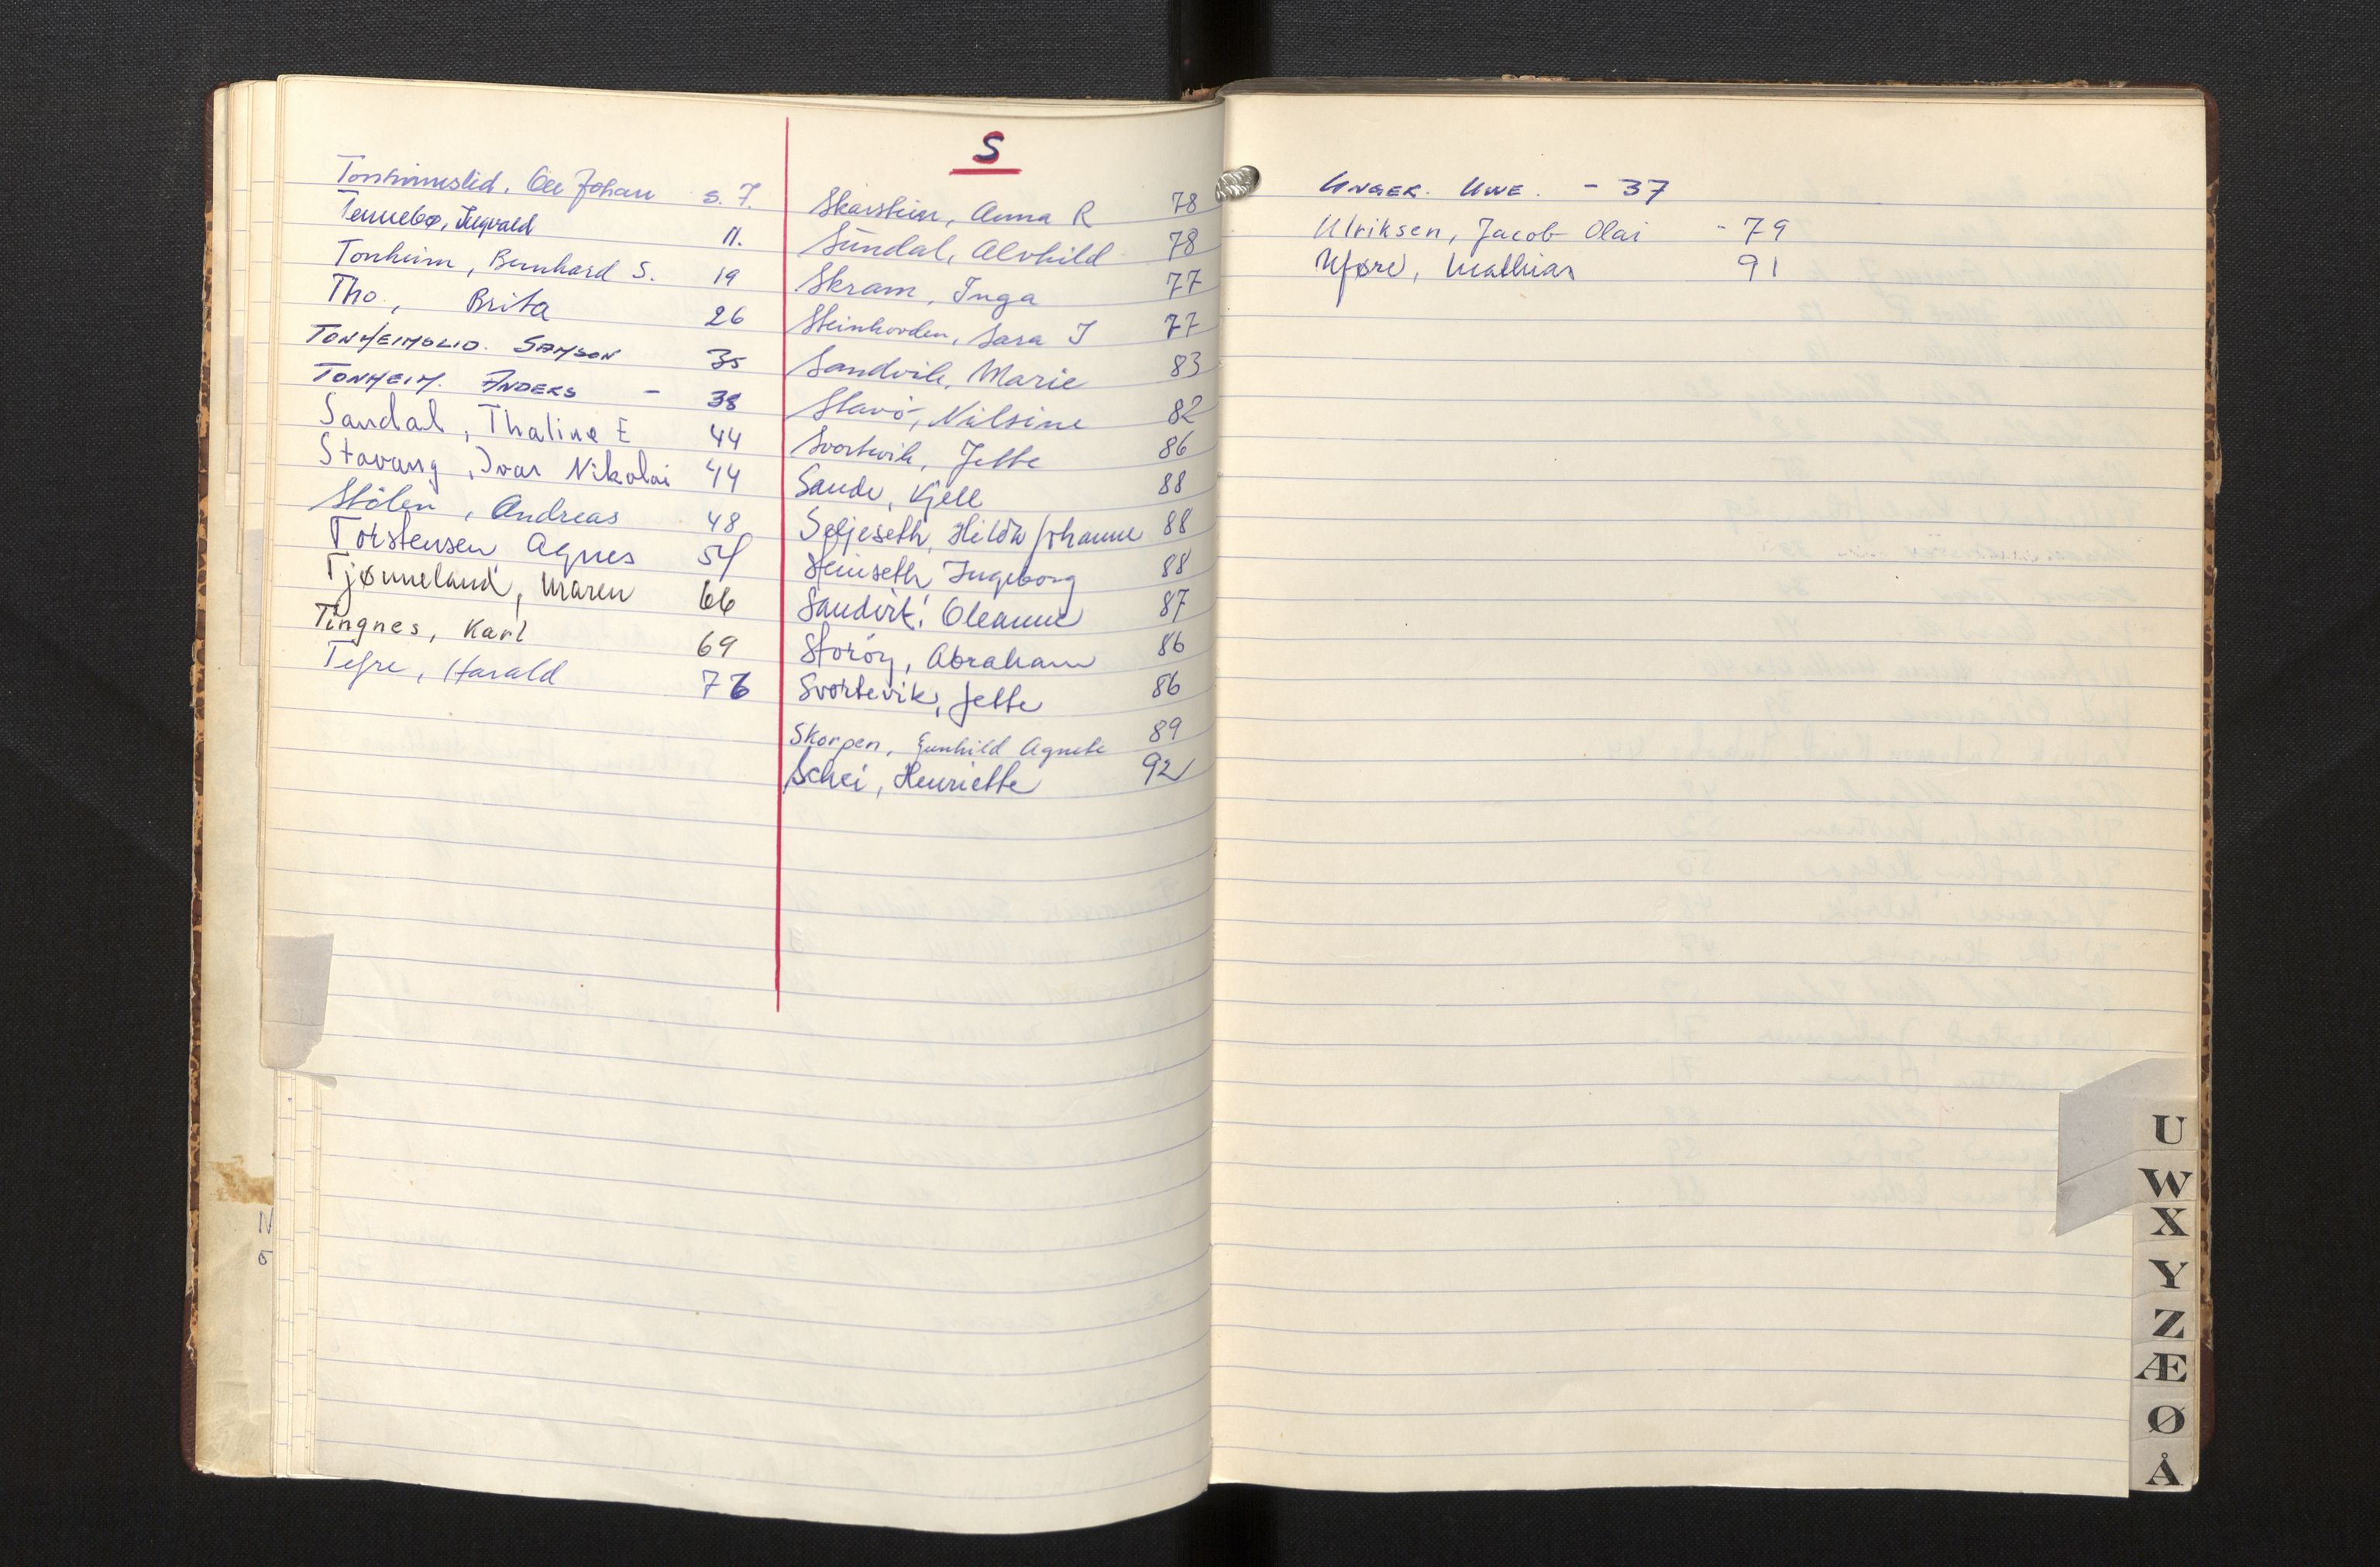 Tonheimslid, Ole Johan s. 7.
Tennebø, Ingvald 11.
Tonheim, Bernhard S. 19
Tho, Brita 26
TONHEIMSLID. SAMSON 35
TONHEIM. ANDERS - 38
Sandal, Thaline E 44
Stavang, Ivar Nikolai 44
Stölen, Andreas 48
Torstensen, Agnes 54
Tjønneland, Maren 66
Tingnes, Karl 69
Tefre, Harald 76
S
Skarstein, Anna R 78
Sundal, Alvhild 78
Skram, Inga 77
Steinhovden, Sara J 77
Sandvik, Marie 83
Stavö, Nilsine 82
Svortevik, Jette 86
Sande, Kjell 88
Seljeseth, Hilda Johanne 88
Heinseth, Ingeborg 88
Sandvik, Oleanne 87
Storöy, Abraham 86
Svortevik, Jette 86
Skorpen, Gunhild Agnete 89
Schei, Henriette 92
UNGER. UWE. - 37
Ulriksen, Jacob Olai - 79
Uføre, Mathias 91
U
W
X
Y
Z
Æ
Ø
Å
N